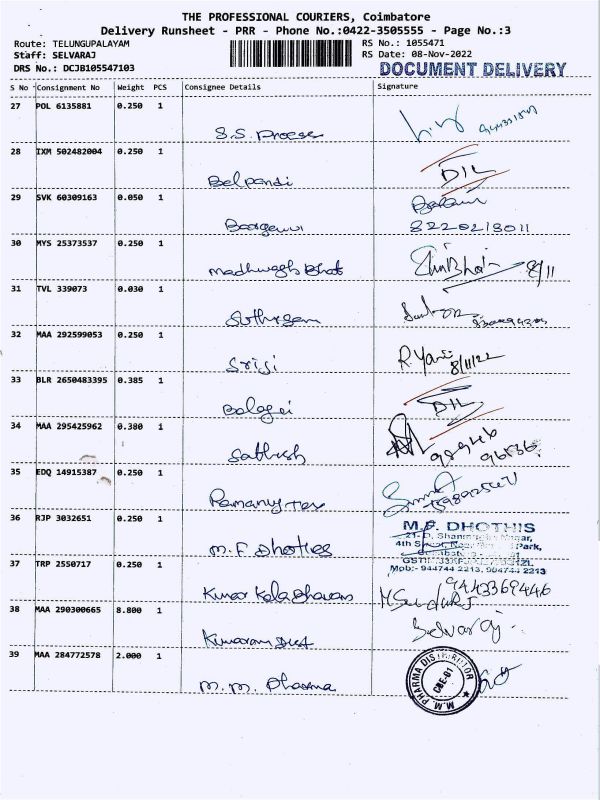 THE PROFESSIONAL COURIERS, Coimbatore
Delivery Runsheet - PRR - Phone No.:0422-3505555 - Page No.:3
Route: TELUNGUPALAYAM
Staff: SELVARAJ
DRS No.: DCJB105547103
RS No.: 1055471
RS Date: 08-Nov-2022
DOCUMENT DELIVERY
S No Consignment No Weight PCS Consignee Details Signature
27 POL 6135881 0.250 1
28 IXM 502482004 0.250 1
Belpandi DIL
29 SVK 60309163 0.050 1
8220218011
30 MYS 25373537 0.250 1
8/11
31 TVL 339073 0.030 1
32 MAA 292599053 0.250 1
Sriji 8/11/22
33 BLR 2650483395 0.385 1
Balaji DIL
34 MAA 295425962 0.380 1
Sathish
35 EDQ 14915387 0.250 1
Ramanuj Tex
36 RJP 3032651 0.250 1
M.F. Dhoties
M.F. DHOTHIS
Mob:- 944744 2213, 904744 2213
37 TRP 2550717 0.250 1
Kumar Kala Bhavan 9443369446
38 MAA 290300665 8.800 1
Kumaran Dist Selvaraj
39 MAA 284772578 2.000 1
M.M. Pharma
M.M. PHARMA DISTRIBUTOR
CBE-01